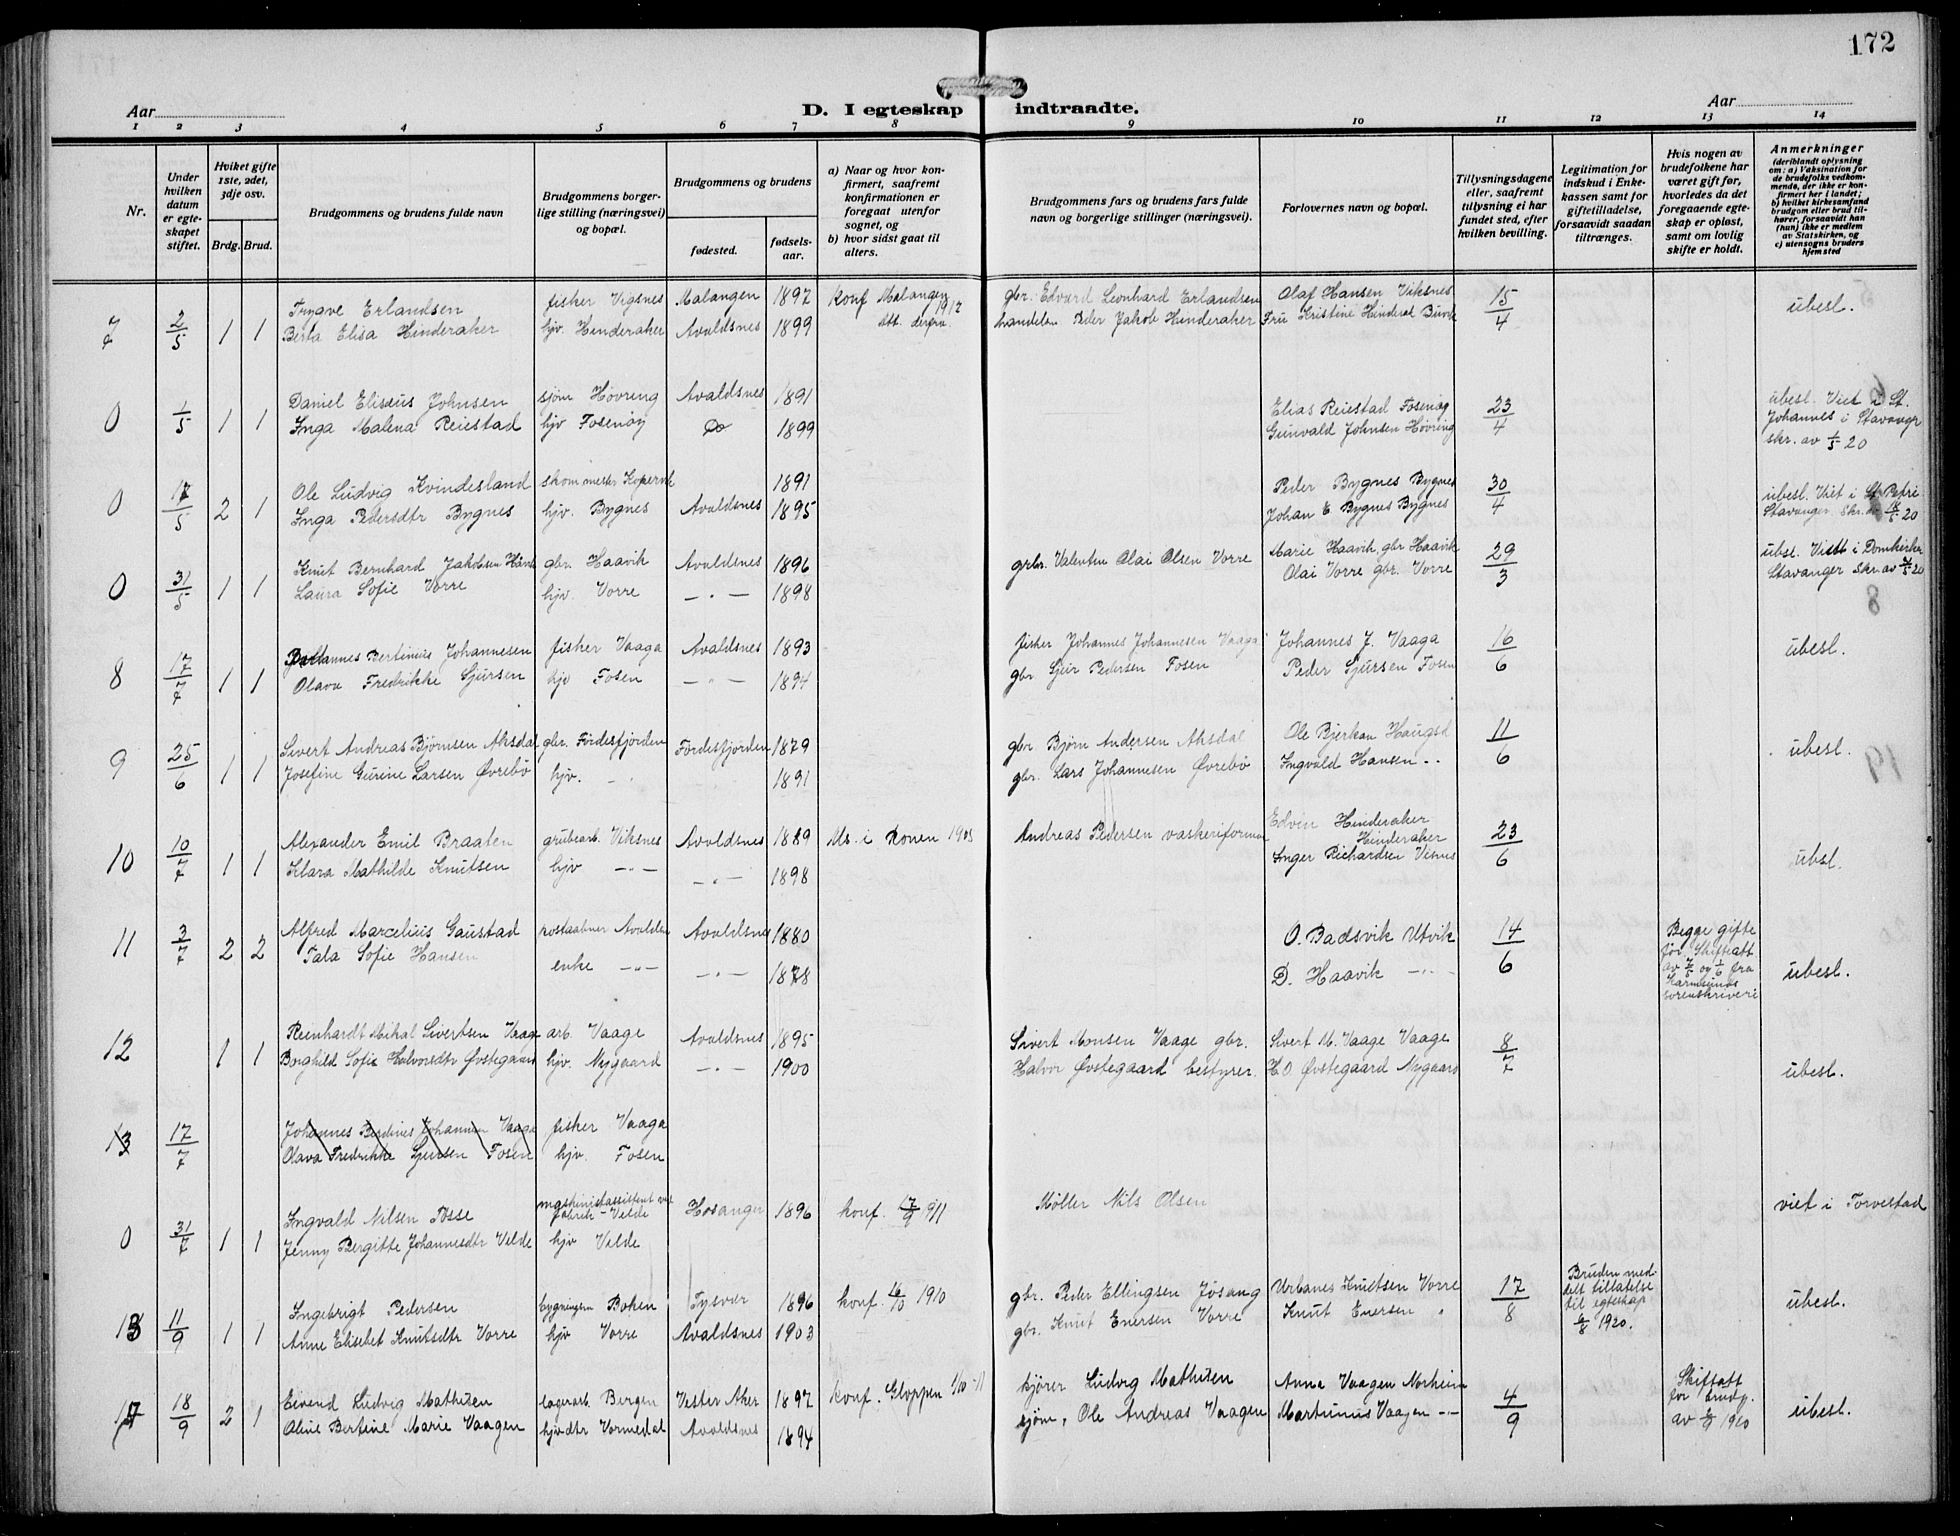 172
Aar
D. I egteskap indtraadte.
Aar
1 2 3 4 5 6 7 8 9 10 11 12 13 14
Nr.
Under hvilken datum er egteskapet stiftet.
Hvilket gifte 1ste, 2det, 3dje osv.
Brdg. Brud.
Brudgommens og brudens fulde navn
Brudgommens borgerlige stilling (næringsvei) og bopæl.
Brudgommens og brudens
fødested.
fødselsaar.
a) Naar og hvor konfirmert, saafremt konfirmationen er foregaat utenfor sognet, og
b) hvor sidst gaat til alters.
Brudgommens fars og brudens fars fulde navn og borgerlige stillinger (næringsvei).
Forlovernes navn og bopæl.
Tillysningsdagene eller, saafremt tillysning ei har fundet sted, efter hvilken bevilling.
Legitimation for indskud i Enkekassen samt for giftetilladelse, forsaavidt saadan tiltrænges.
Hvis nogen av brudefolkene har været gift før, hvorledes da det foregaaende egteskap er opløst, samt om lovlig skifte er holdt.
Anmerkninger
(deriblandt oplysning om: a) Vaksination for de brudefolks vedkommende, der ikke er konfirmert her i landet; b) hvilket kirkesamfund brudgom eller brud tilhører, forsaavidt han (hun) ikke er medlem av Statskirken, og c) utensogns bruders hjemsted
7 2/5 1 1 Trygve Erlandsen fisher Vigsnes Malangen 1897 Konf Malangen 1912 gbr. Edvard Leonhard Erlandsen Olaf Hansen Viksnes 15/4 ubesl.
Berta Elisa Hinderaker hjv. Hinderaker Avaldsnes 1899 att. derfra Peder Jakob Hinderaker Fru Kristine
0 1/5 1 1 Daniel Elisæus Johnsen sjøm Høvring Avaldsnes 1891 Elias Reiestad Fosenøy 23/4 ubesl. Viet i St.
Inga Malena Reiestad hjv Fosenøy Do 1899 Gunvald Johnsen Høvring Johannes i Stavanger
skr. av 1/5 20
0 5 2 1 Ole Ludvig Kvindesland 1891 Peder Bygnes Bygnes 30/4 ubesl. Viet i St. Petri
Inga Pedersdtr Bygnes hjv. Bygnes Avaldsnes 1895 Johan E Bygnes Bygnes Stavanger. Skr. av 20
0 31/5 1 1 Knut Bernhard Jakobsen gbr. Haavik Avaldsnes 1896 grbr. Valentin Olai Olsen Vorre Marie Haavik gbr Haavik 29/3 ubsl. Viet i Domkirken
Laura Sofie Vorre hjv. Vorre — " — 1898 Olai Vorre gbr. Vorre Stavanger Skr. av 20
8 17/7 1 1 Bertinius Johannesen fisher Vaaga Avaldsnes 1893 fisher Johannes Johannesen Vaaga Johannes J. Vaaga 16/6 ubesl.
Olava Fredrikke Sjursen hjv Fosen — " — 1894 gbr. Sjur Pedersen Fosen Peder Sjursen Fosen
9 25/6 1 1 Sivert Andreas Bjørnsen Aksdal gbr. Førdesfjorden Førdesfjorden 1879 gbr Bjørn Andersen Aksdal Ole Bjerkan 11/6 ubesl.
Josefine Gurine Larsen Øvrebø hjv. 1891 gbr. Lars Johannesen Øvrebø Ingvald Hansen
10 10/7 1 1 Alexander Emil Braaten grubearb. Viksnes Avaldsnes 1889 Andreas Pedersen Edvin Hinderaker Hinderaker 23/6 ubsl.
Klara Mathilde Knutsen hjv — " — — " — 1898 Inger Richardsen Visnes
11 3/7 2 2 Alfred Marcelius Gaustad Avaldsnes 1880 O. Badsvik Utvik 14/6 Begge gifte
Tala Sofie Hansen enke — " — — " — 1878 D. Haavik — " — før Skifteatt
av 7/5 og 1/6 fra
Karmsunds
sorenskriveri ubesl.
12 1 1 Reinhardt Mikal Sivertsen Vaage arb. Vaage Avaldsnes 1895 Sivert Monsen Vaage gbr. Sivert M. Vaage Vaage 8/7
Borghild Sofie Halvorsdtr Østegaard hjv. Nygaard — " — 1900 Halvor Østegaard bestyrer. H O Østegaard Nygaard ubesl.
13 17/7 Johannes Berdines Johannesen Vaaga fisher Vaaga
Olava Fredrikke Sjursen Fosen hjv. Fosen
0 31/7 1 1 Ingvald Nilsen Fosse maskinistassistent ved fabrik – Velde Hosanger 1896 konf. 17/9 911 Møller Nils Olsen viet i Torvestad
Jenny Bergitte Johannesdtr Velde hjv Velde
13 11/9 1 1 Ingebrigt Pedersen Boken Tysvær 1896 konf. 16/10 1910 gbr. Peder Ellingsen Jøsang Urbanes Knutsen Vorre 17/8 Bruden meddelt tillatelse til egteskap 6/8 1920. ubesl.
Anne Elisebet Knutsdtr Vorre hjv Vorre Avaldsnes 1903 gbr. Knut Enersen Vorre Knut Enersen "
18/9 2 1 Eivend Ludvig Mathisen lagerarb. Bergen Vester Aker 1897 konf. Gloppen 1/10 -11 kjører Ludvig Mathisen Anna Vaagen Norheim 4/9 Skifteatt for brudg. av 1920 ubesl.
Aline Bertine Marie Vaagen hjv dtr Vormedal Avaldsnes 1894 sjøm. Ole Andreas Vaagen Martinius Vaagen — " —